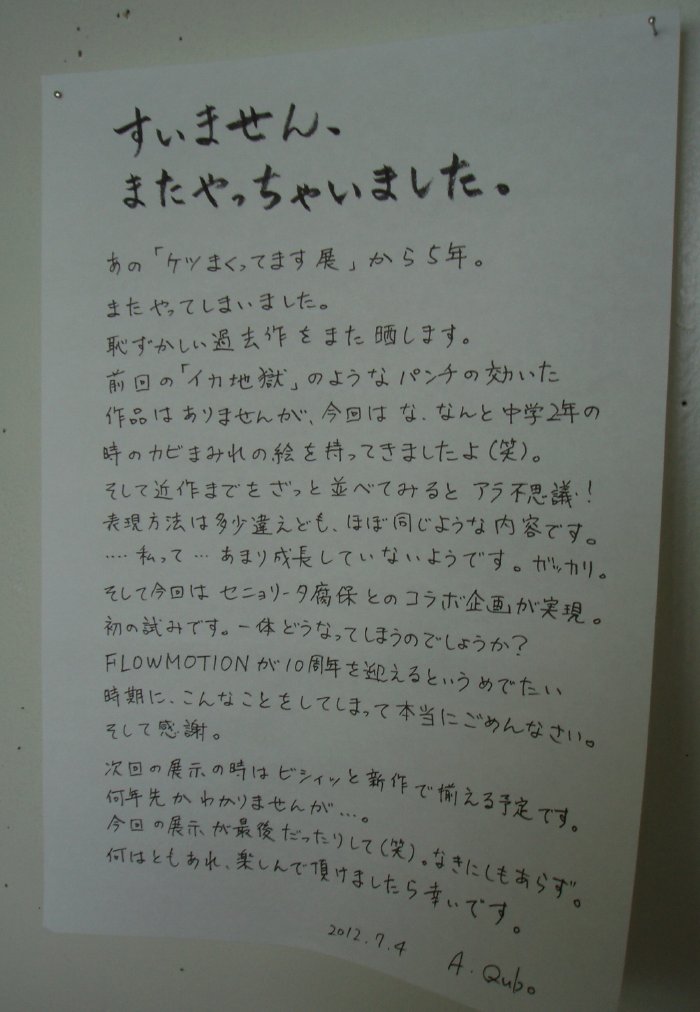 すいません、
またやっちゃいました。
あの「ケツまくってます展」から5年。
またやってしまいました。
恥ずかしい過去作をまた晒します。
前回の「イカ地獄」のようなパンチの効いた
作品はありませんが、今回はな、なんと中学2年の
時のカビまみれの絵を持ってきましたよ(笑)。
そして近作までをざっと並べてみるとアラ不思議!
表現方法は多少違えども、ほぼ同じような内容です。
‥‥私って…あまり成長していないようです。ガッカリ。
そして今回はセニョリータ腐保とのコラボ企画が実現。
初の試みです。一体どうなってしまうのでしょうか?
FLOWMOTIONが10周年を迎えるというめでたい
時期に、こんなことをしてしまって本当にごめんなさい。
そして感謝。
次回の展示の時はビシィッと新作で揃える予定です。
何年先かわかりませんが…。
今回の展示が最後だったりして(笑)。なきにしもあらず。
何はともあれ、楽しんで頂けましたら幸いです。
2012.7.4
A. Qubo